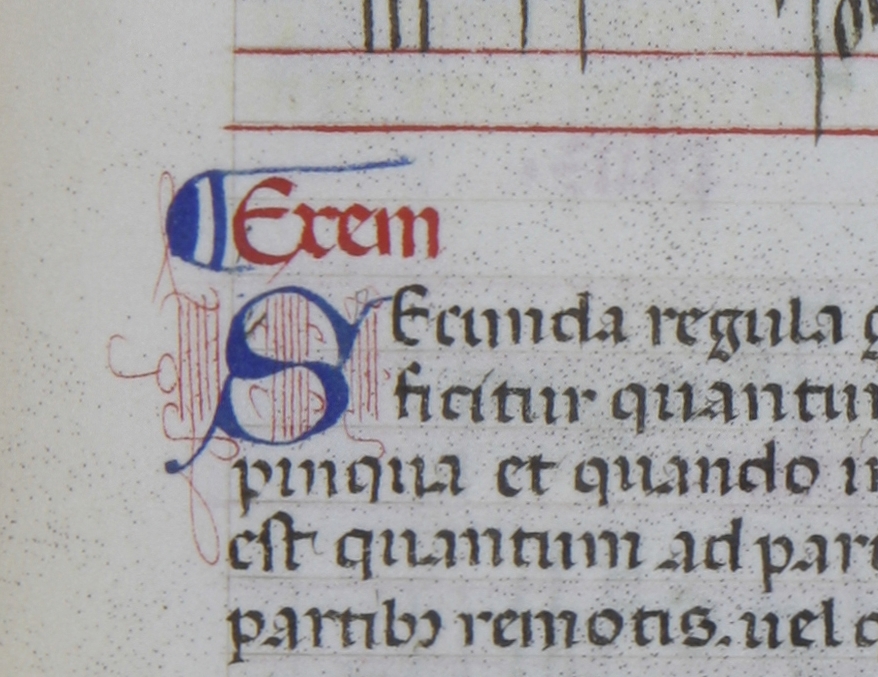 ¶ Exem
SEcunda regula
ficitur
pinqua et quando
est quantum ad
partibꝫ remotis. uel